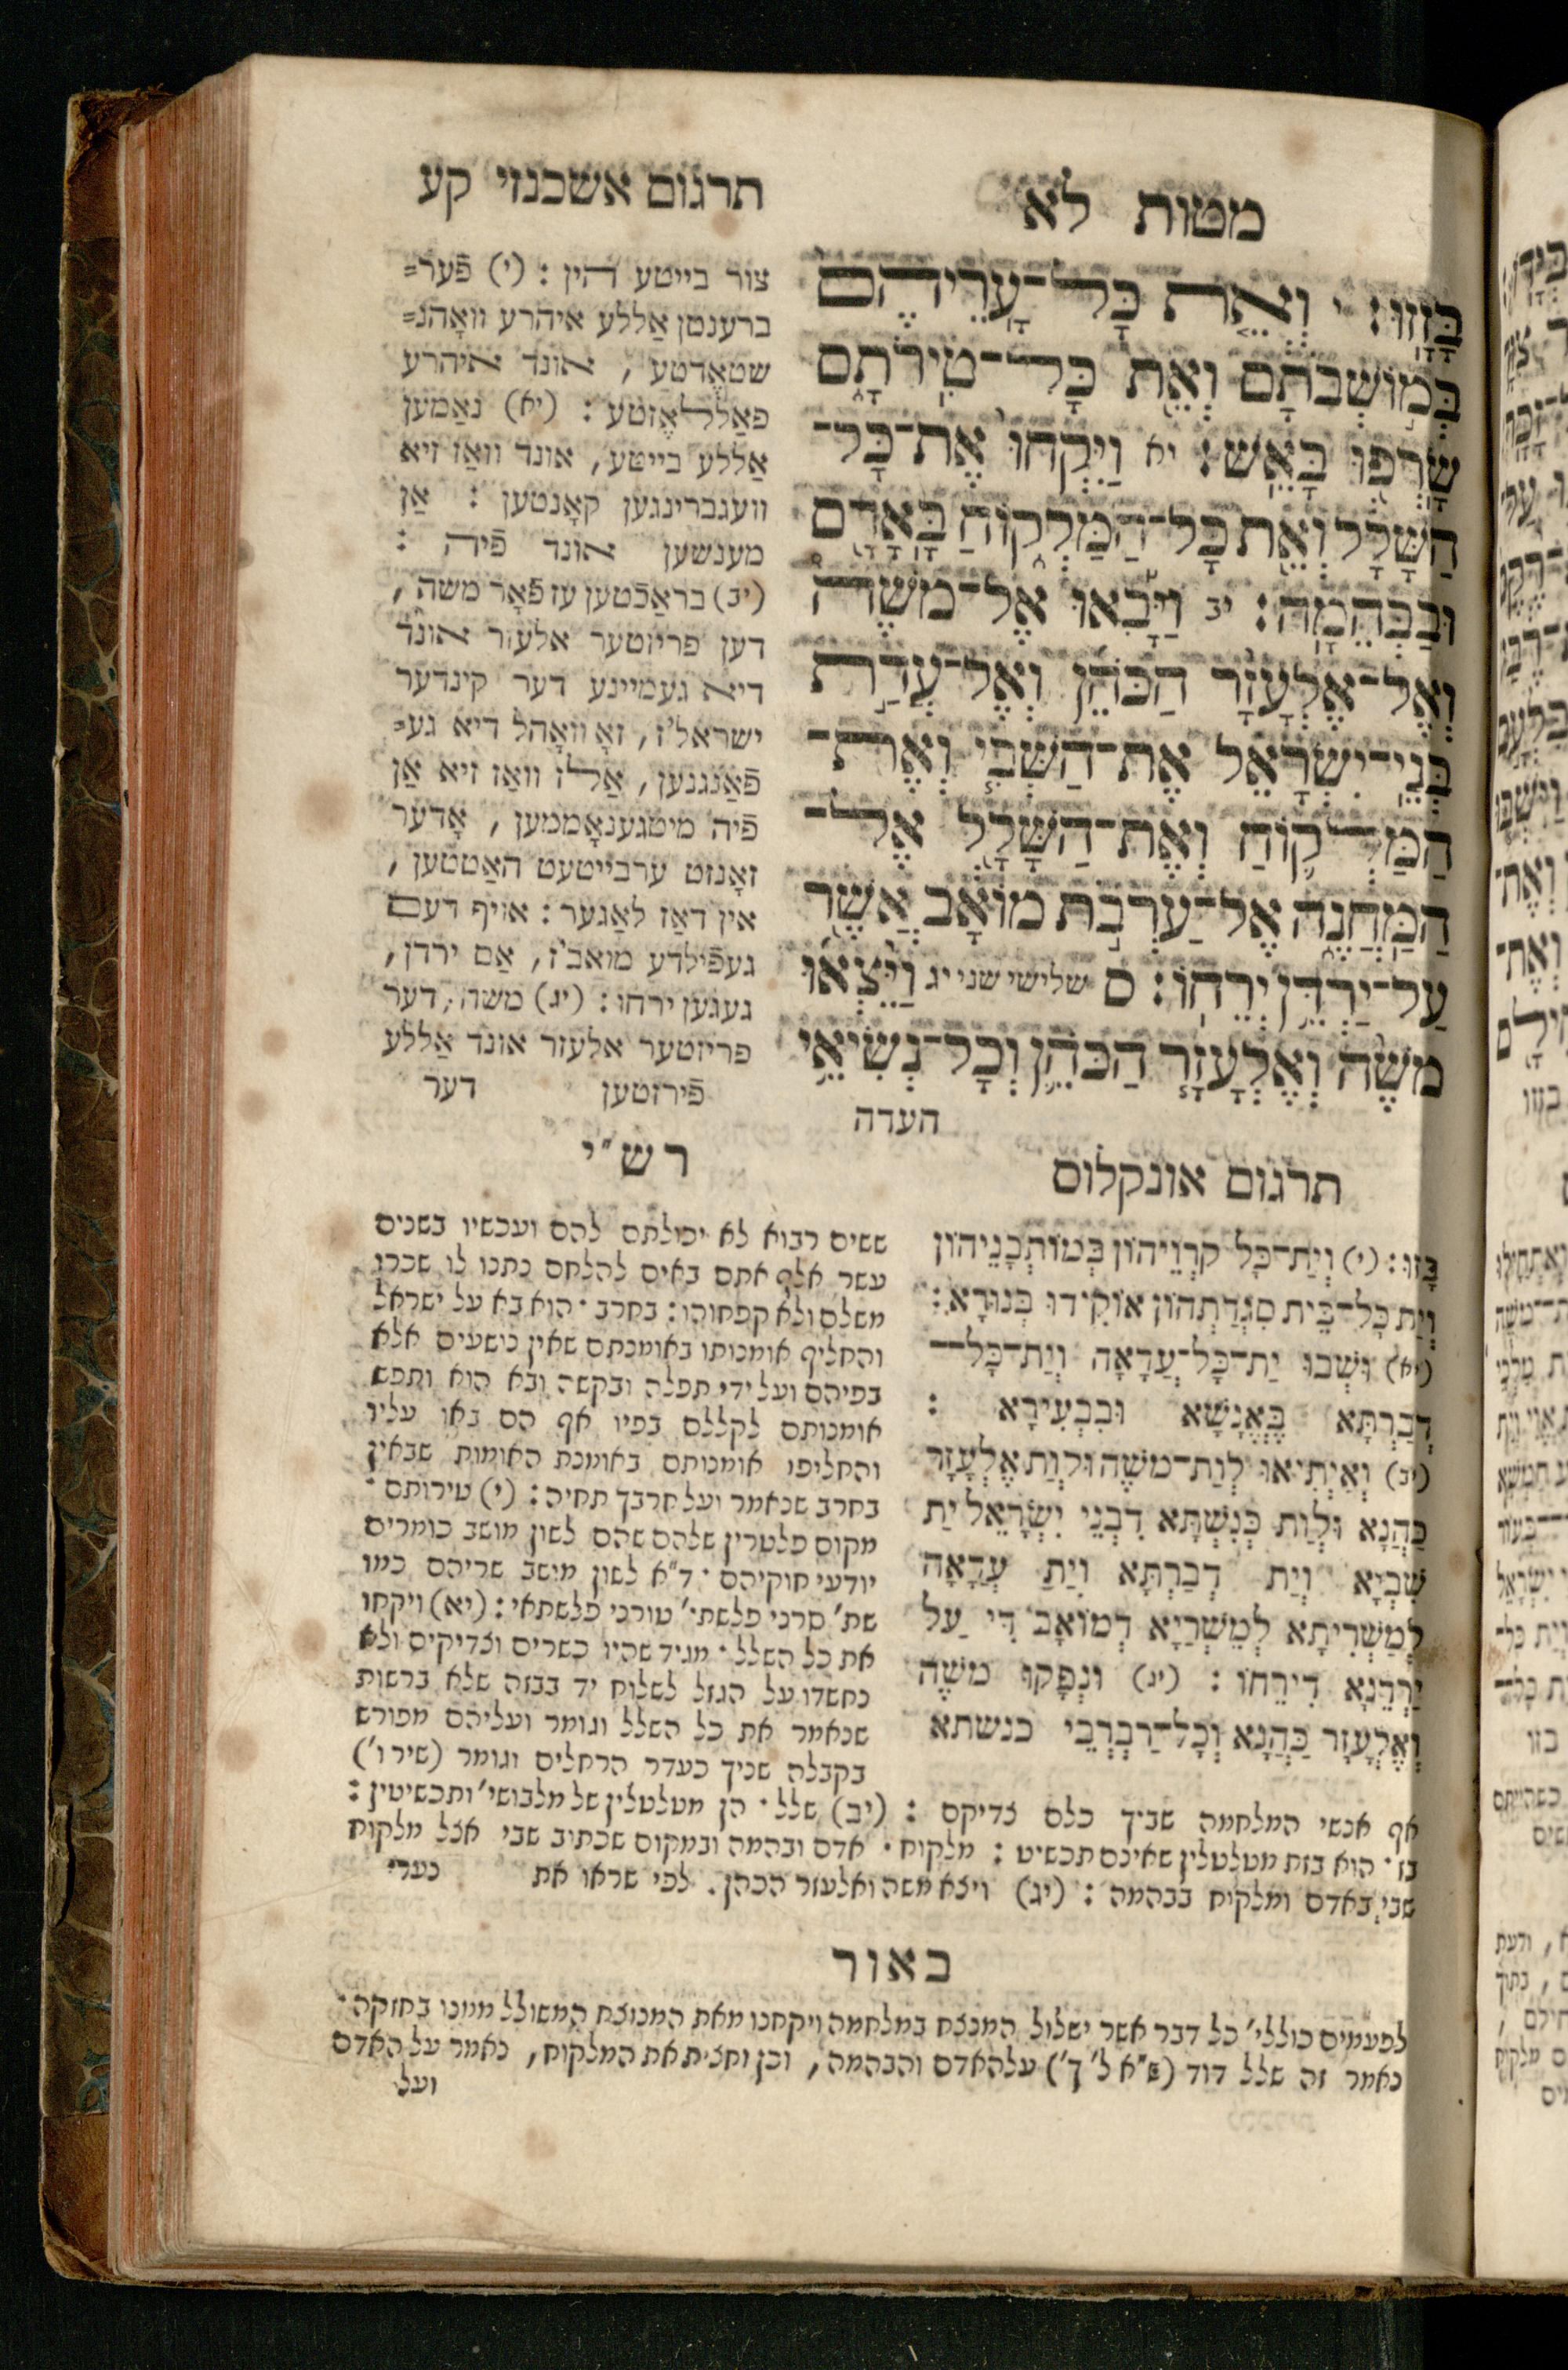 מטות לא
בָּזָזוּ: י וְאֵת כָּל־עָרֵיהֶם
בְּמוֹשְׁבֹתָם וְאֵת כָּל־טִירֹתָם
שָׂרְפוּ בָּאֵשׁ: יא וַיִּקְחוּ אֶת־כָּל־
הַשָּׁלָל וְאֵת כָּל־הַמַּלְקוֹחַ בָּאָדָם
וּבַבְּהֵמָה: יב וַיָּבִאוּ אֶל־מֹשֶׁה
וְאֶל־אֶלְעָזָר הַכֹּהֵן וְאֶל־עֲדַת
בְּנֵי־יִשְׂרָאֵל אֶת־הַשְּׁבִי וְאֶת־
הַמַּלְקוֹחַ וְאֶת־הַשָּׁלָל אֶל־
הַמַּחֲנֶה אֶל־עַרְבֹת מוֹאָב אֲשֶׁר
עַל־יַרְדֵּן יְרֵחוֹ: ס שלישי שני יג וַיֵּצְאוּ
מֹשֶׁה וְאֶלְעָזָר הַכֹּהֵן וְכָל־נְשִׂיאֵי
העדה
תרגום אשכנזי קע
צור בייטע הין: (י) פֿער=
ברענטן אַללע איהרע וואָהנ=
שטאֶדטע, אונד איהרע
פאַללאֶזטע: (יא) נאַמען
אַללע בייטע, אונד וואַז זיא
וועגברינגען קאָנטען: אַן
מענשען אונד פֿיה:
(יב) בראַכֿטען עז פֿאָר משה,
דען פריזטער אלעזר אונד
דיא געמיינע דער קינדער
ישראל'ז, זאָ וואָהל דיא גע=
פֿאַנגנען, אַלז וואַז זיא אַן
פֿיה מיטגענאָממען, אָדער
זאָנזט ערבייטעט האַטטען,
אין דאַז לאַגער: אויף דעם
געפֿילדע מואב'ז, אַם ירדן,
געגען ירחו: (יג) משה, דער
פריזטער אלעזר אונד אַללע
פֿירזטען דער
תרגום אונקלוס
בָּזוּ: (י) וְיַת־כָּל קִרְוֵיהוֹן בְּמוֹתְבָנֵיהוֹן
וְיַת כָּל־בֵּית סִגְדַתְהוֹן אוֹקִידוּ בְּנוּרָא:
(יא) וּשְׁבוֹ יַת־כָּל־עֲדָאָה וְיַת־כָּל־
דְבַרְתָּא בֶּאֱנָשָׁא וּבִבְעִירָא:
(יב) וְאַיְתִיאוּ לְוַת־מֹשֶׁה וּלְוַת אֶלְעָזָר
כַּהֲנָא וּלְוַת כְּנִשְׁתָּא דִבְנֵי יִשְׂרָאֵל יַת
שִׁבְיָא וְיַת דְבַרְתָּא וְיַת עֲדָאָה
לְמַשְׁרִיתָא לְמֵשְׁרַיָא דְמוֹאָב דִּי עַל
יַרְדְּנָא דִירֵחוֹ: (יג) וּנְפָקוּ מֹשֶׁה
וְאֶלְעָזָר כַּהֲנָא וְכָל־רַבְרְבֵי כנשתא
רש״י
ששים רבוא לא יכולתם להם ועכשיו בשנים
עשר אלף אתם באים להלחם נתנו לו שכרו
משלם ולא קפחוהו: בחרב · הוא בא על ישראל
והחליף אומנותו באומנתם שאין נושעים אלא
בפיהם ועל ידי תפלה ובקשה ובא הוא ותפש
אומנותם לקללם בפיו אף הם באו עליו
והחליפו אומנותם באומנת האומות שבאין
בחרב שנאמר ועל חרבך תחיה: (י) טירותם ·
מקום פלטרין שלהם שהם לשון מושב כומרים
יודעי חוקיהם · ד״א לשון מושב שריהם כמו
שת' סרני פלשת' טורני פלשתאי: (יא) ויקחו
את כל השלל · מגיד שהיו כשרים וצדיקים ולא
נחשדו על הגזל לשלוח יד בבזה שלא ברשות
שנאמר את כל השלל וגומר ועליהם מפורש
בקבלה שניך כעדר הרחלים וגומר (שיר ו')
אף אנשי המלחמה שביך כלם צדיקים: (יב) שלל · הן מטלטלין של מלבושי' ותכשיטין:
בז · הוא בזת מטלטלין שאינם תכשיט: מלקוח · אדם ובהמה ובמקום שכתוב שבי אצל מלקוח
שבי באדם ומלקוח בבהמה: (יג) ויצא משה ואלעזר הכהן. לפי שראו את נערי
באור
לפעמים כוללי' כל דבר אשר ישלול המנצח במלחמה ויקחנו מאת המנוצח המשולל ממנו בחזקה ·
כאמר זה שלל דוד (ש״א ל' ך') על האדם והבהמה, וכן וחצית את המלקוח, נאמר על האדם
ועל